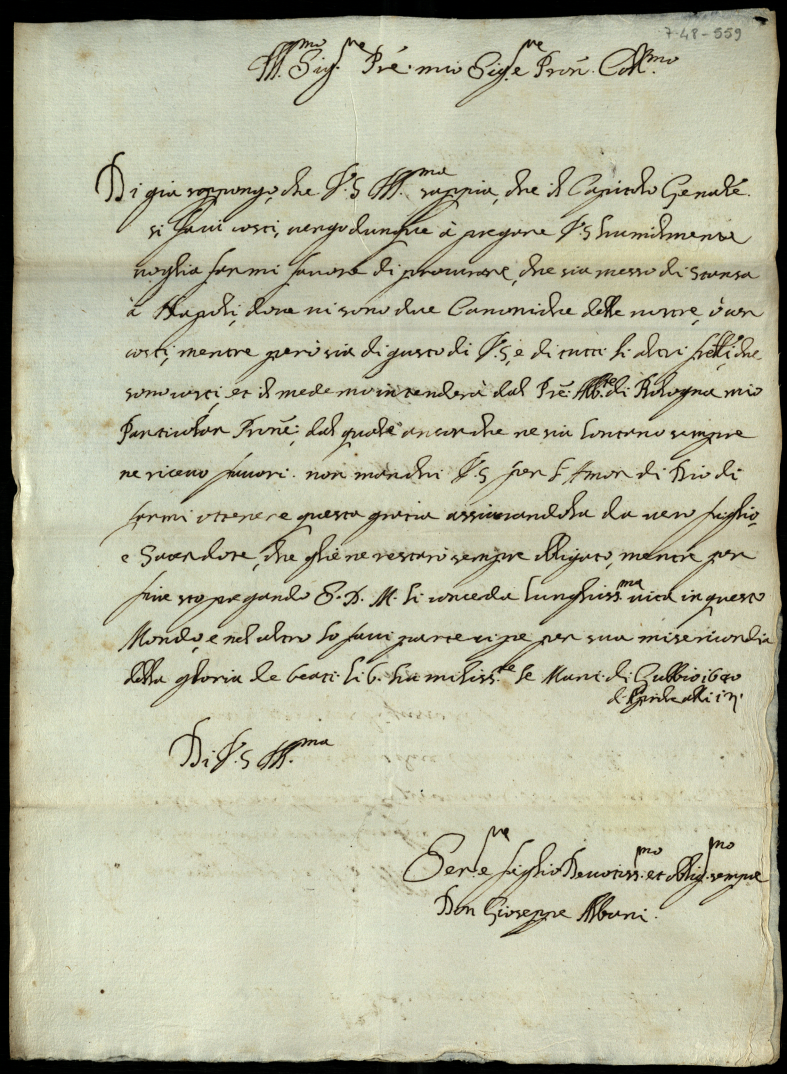 7-48-559
Ill.mo Sig.re Pre. mio Sig.re Pron. Coll.mo
Di gia soppongo, che V.S Ill.ma sappia, che il Capitolo Genale.
si facci costi, vengo dunque à pregare V.S humilmente
voglia farmi favore di procurare, che sia messo di stanza
à Napoli, dove vi sono due Canoniche delle nostre, ò ver
costi, mentre però sia di gusto di V.S, e di tutti li altri frelli, che
sono costi, et il medemo intenderà dal Pre. Abb.te di Bologna mio
Particolar Prone., dal quale ancor che ne sia lontano sempre
ne ricevo favori. non manchi V.S per l'Amor di Dio di
farmi ottenere questa gratia assicurandola da vero figlio,
e Sacerdote, che gliene restarò sempre obligato, mentre per
fine sto pregando S.D.M. li conceda lunghiss.ma vita in questo
Mondo, e nel altro lo facci partecipe per sua misericordia
della gloria de beati. li b. humiliss.te le Mani. di Gubbio 1640
Di V.S Ill.ma
Ser.re e figlio Devotiss.mo et oblig.mo sempre
Don Gioseppe Albani.